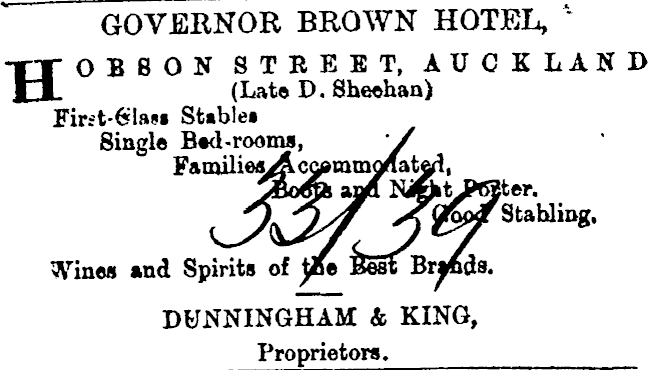 GOVERNOR BROWN HOTEL,
HOBSON STREET, AUCKLAND
(Late D. Sheehan)
First-Glass Stables
Single Bed-rooms,
Families Accommodated,
Boots and Night Porter.
Good Stabling.
33/39
Wines and Spirits of the Best Brands.
DUNNINGHAM & KING,
Proprietors.